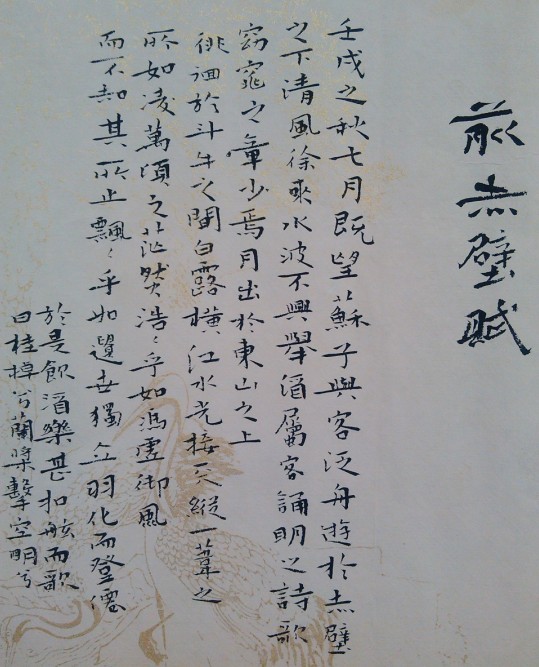 前赤壁賦
壬戌之秋七月既望蘇子與客泛舟遊於赤壁
之下清風徐來水波不興舉酒屬客誦明之詩歌
窈窕之章少焉月出於東山之上
徘徊於斗牛之間白露橫江水光接天縱一葦之
所如凌萬頃之茫然浩〻乎如馮虛御風
而不知其所止飄〻乎如遺世獨立羽化而登僊
於是飲酒樂甚扣舷而歌
曰桂棹兮蘭槳擊空明兮